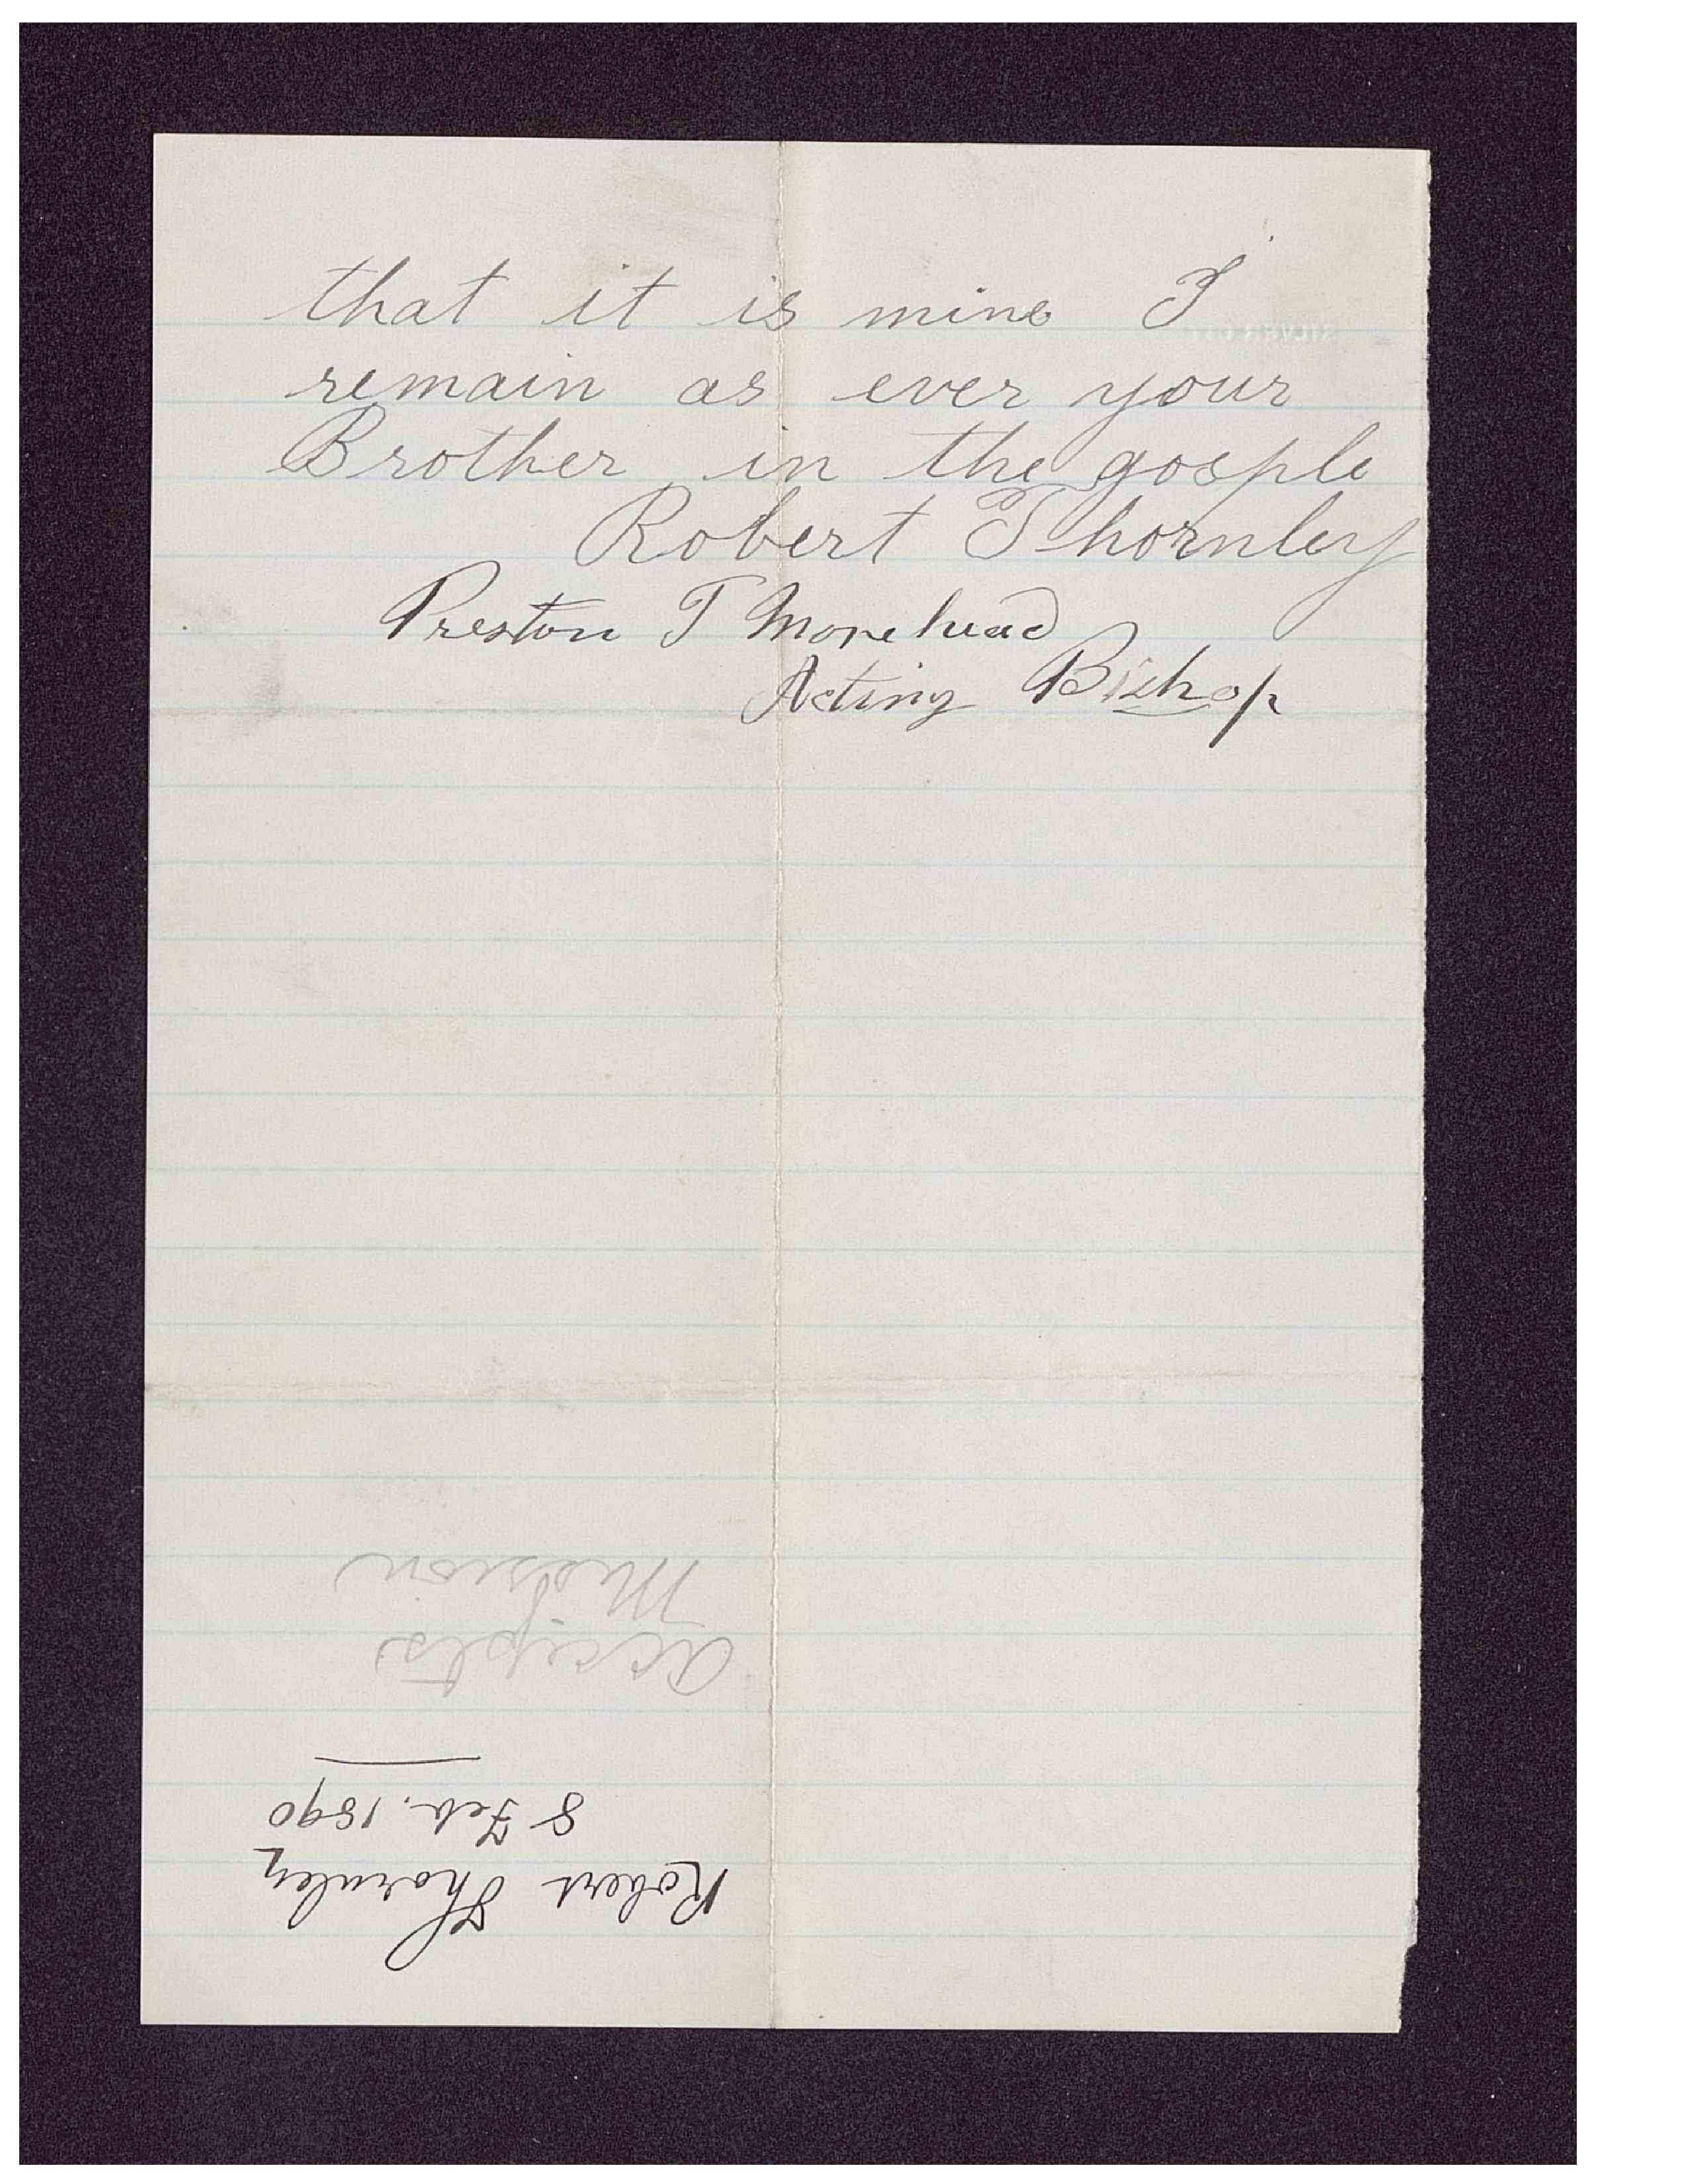 that it is mine I
remain as ever your
Brother in the gosple
Robert Thornley
Preston T Morehead
Acting Bishop
Robert Thornley
8 Feb. 1890
Accepts
Mission